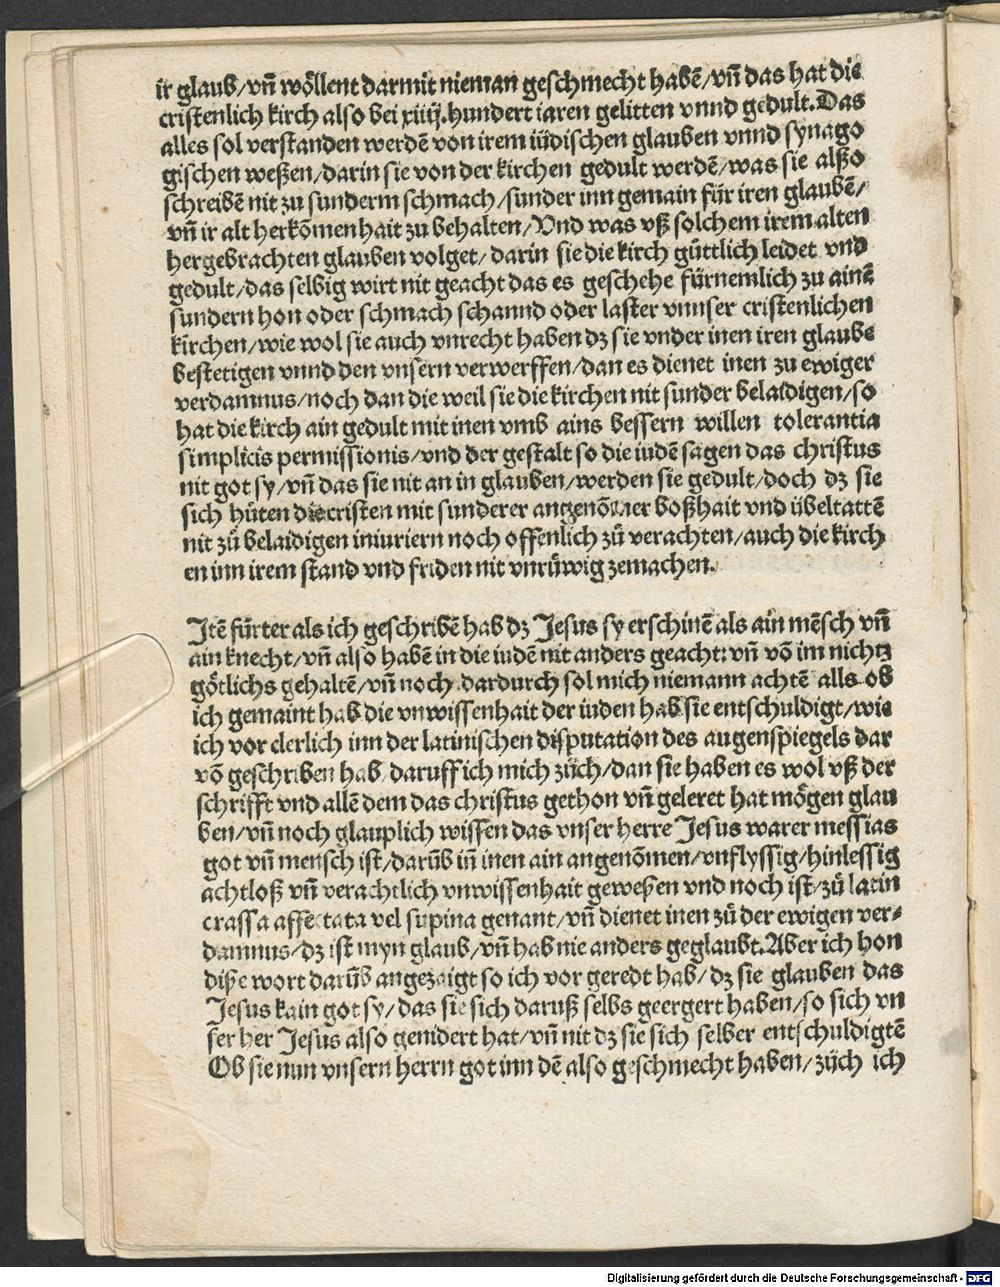 ir glaub/vñ wöllent darmit nieman geschmecht habē/vñ das hat die
cristenlich kirch also bei xiiij.hundert iaren gelitten vnnd gedult.Das
alles sol verstanden werdē von irem iüdischen glauben vnnd synago
gischen weßen/darin sie von der kirchen gedult werdē/was sie alßo
schreibē nit zu sunderm schmach/sunder inn gemain für iren glaubē/
vñ ir alt herkōmenhait zu behalten/Vnd was vß solchem irem alten
hergebrachten glauben volget/darin sie die kirch güttlich leidet vnd
gedult/das selbig wirt nit geacht das es geschehe fürnemlich zu ainē
sundern hon oder schmach schannd oder laster vnnser cristenlichen
kirchen/wie wol sie auch vnrecht haben dz sie vnder inen iren glaube
bestetigen vnnd den vnsern verwerffen/dan es dienet inen zu ewiger
verdamnus/noch dan die weil sie die kirchen nit sunder belaidigen/so
hat die kirch ain gedult mit inen vmb ains bessern willen tolerantia
simplicis permissionis/vnd der gestalt so die iudē sagen das christus
nit got sy/vñ das sie nit an in glauben/werden sie gedult/doch dz sie
sich hüten die cristen mit sunderer angenōmer boßhait vnd übeltattē
nit zů belaidigen iniuriern noch offenlich zů verachten/auch die kirch
en inn irem stand vnd friden nit vnrüwig zemachen.

Itē fürter als ich geschribē hab dz Jesus sy erschinē als ain mēsch vñ
ain knecht/vñ also habē in die iudē nit anders geacht: vñ vō im nichtz
götlichs gehaltē/vñ noch dardurch sol mich niemann achtē alls ob
ich gemaint hab die vnwissenhait der iuden hab sie entschuldigt/wie
ich vor clerlich inn der latinischen disputation des augenspiegels dar
vō geschriben hab daruff ich mich züch/dan sie haben es wol vß der
schrifft vnd allē dem das christus gethon vñ geleret hat mögen glau
ben/vñ noch glauplich wissen das vnser herre Jesus warer messias
got vñ mensch ist/darūb iñ inen ain angenōmen/vnflyssig/hinlessig
achtloß vñ verachtlich vnwissenhait geweßen vnd noch ist/zů latin
crassa affectata vel supina genant/vñ dienet inen zů der ewigen ver⸗
damnus/dz ist myn glaub/vñ hab nie anders geglaubt.Aber ich hon
diße wort darūb angezaigt so ich vor geredt hab/dz sie glauben das
Jesus kain got sy/das sie sich daruß selbs geergert haben/so sich vn
ser her Jesus also genidert hat/vñ nit dz sie sich selber entschuldigtē
Ob sie nun vnsern herrn got inn dē also geschmecht haben/züch ich

Digitalisierung gefördert durch die Deutsche Forschungsgemeinschaft - DFG